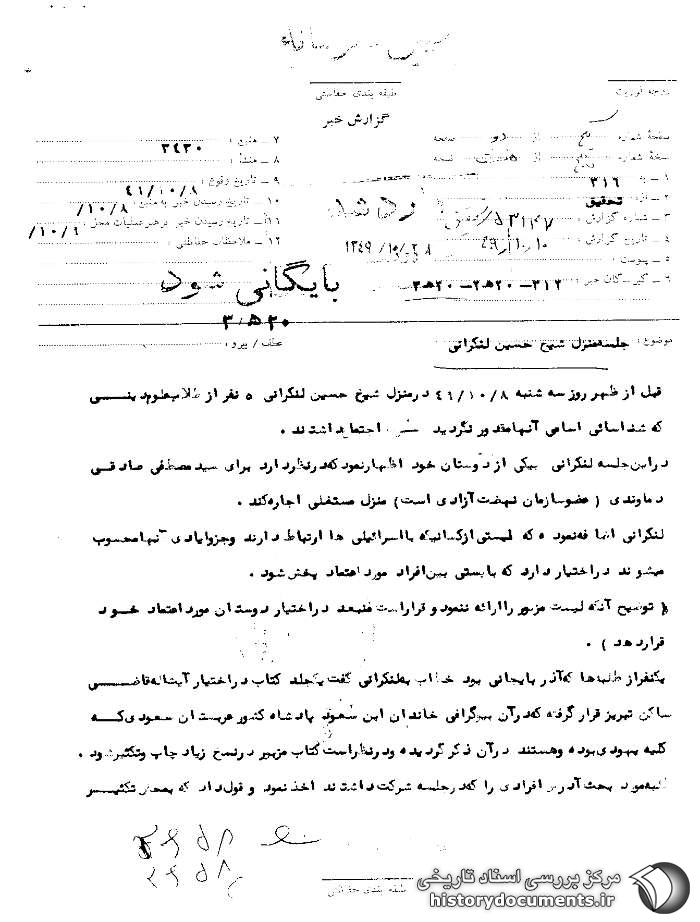 طبقه بندی حفاظتی
گزارش خبر
درجه فوریت
صفحه شماره از دو صفحه
نسخه شماره از نسخه
۱ - به ۳۱۶
۲ - از تحقیق
۳ - شماره گزارش
۴ - تاریخ گزارش
۵ - پیوست
۶ - گیرندگان خبر ۳۱۲ - ۲۰ه۲ - ۲۰ه۳
۷ - منبع : ۳٤۳۰
۸ - منشأ :
۹ - تاریخ وقوع : ٤۹/۱۰/۸
۱۰ - تاریخ رسیدن خبر به منبع : ۱۰/۸/
۱۱ - تاریخ رسیدن خبر به رهبر عملیات محل : ۱۰/۹/
۱۲ - ملاحظات حفاظتی :
۱۳٤۹/۱۰/۲۸
بایگانی شود
۲۰ه۳
موضوع : جلسه منزل شیخ حسین لنکرانی
عطف / پیرو :
قبل از ظهر روز سه شنبه ٤۹/۱۰/۸ در منزل شیخ حسین لنکرانی ۵ نفر از طلاب علوم دینی
که شناسائی اسامی آنها مقدور نگردید اجتماع داشتند .
در این جلسه لنکرانی بیکی از دوستان خود اظهار نمود که در نظر دارد برای سید مصطفی صادقی
دماوندی ( عضو سازمان نهضت آزادی است ) منزل مستقلی اجاره کند .
لنکرانی اضافه نمود که لیستی از کسانیکه با اسرائیلی ها ارتباط دارند و جزو ایادی آنها محسوب
میشوند در اختیار دارد که بایستی بین افراد مورد اعتماد پخش شود .
( توضیح آنکه لیست مزبور را ارائه ننمود و قرار است در اختیار دوستان مورد اعتماد خود
قرار دهد ) .
یکنفر از طلبه ها که آذربایجانی بود خطاب به لنکرانی گفت یکجلد کتاب در اختیار آیت اله قاضی
ساکن تبریز قرار گرفته که در آن بیوگرافی خاندان ابن سعود پادشاه کشور عربستان سعودی که
کلیه یهودی بوده و هستند در آن ذکر گردیده و در نظر است کتاب مزبور در نسخ زیاد چاپ و تکثیر شود .
طلبه مورد بحث آدرس افرادی را که در جلسه شرکت داشتند اخذ نمود و قول داد که بمحض تکثیر
طبقه بندی حفاظتی
مرکز بررسی اسناد تاریخی
historydocuments.ir